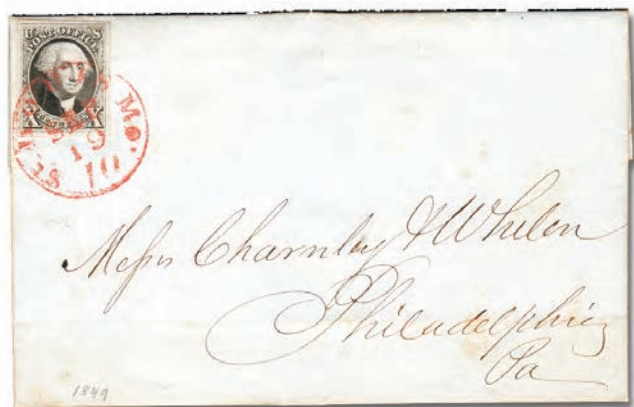 U S
POST OFFICE
X X
Mo.
19
10
Messrs Charnley & Whelen
Philadelphia
Pa